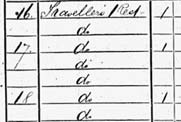 16. Travellers Rest 1
do
17. do 1
do
do
18 do 1
do